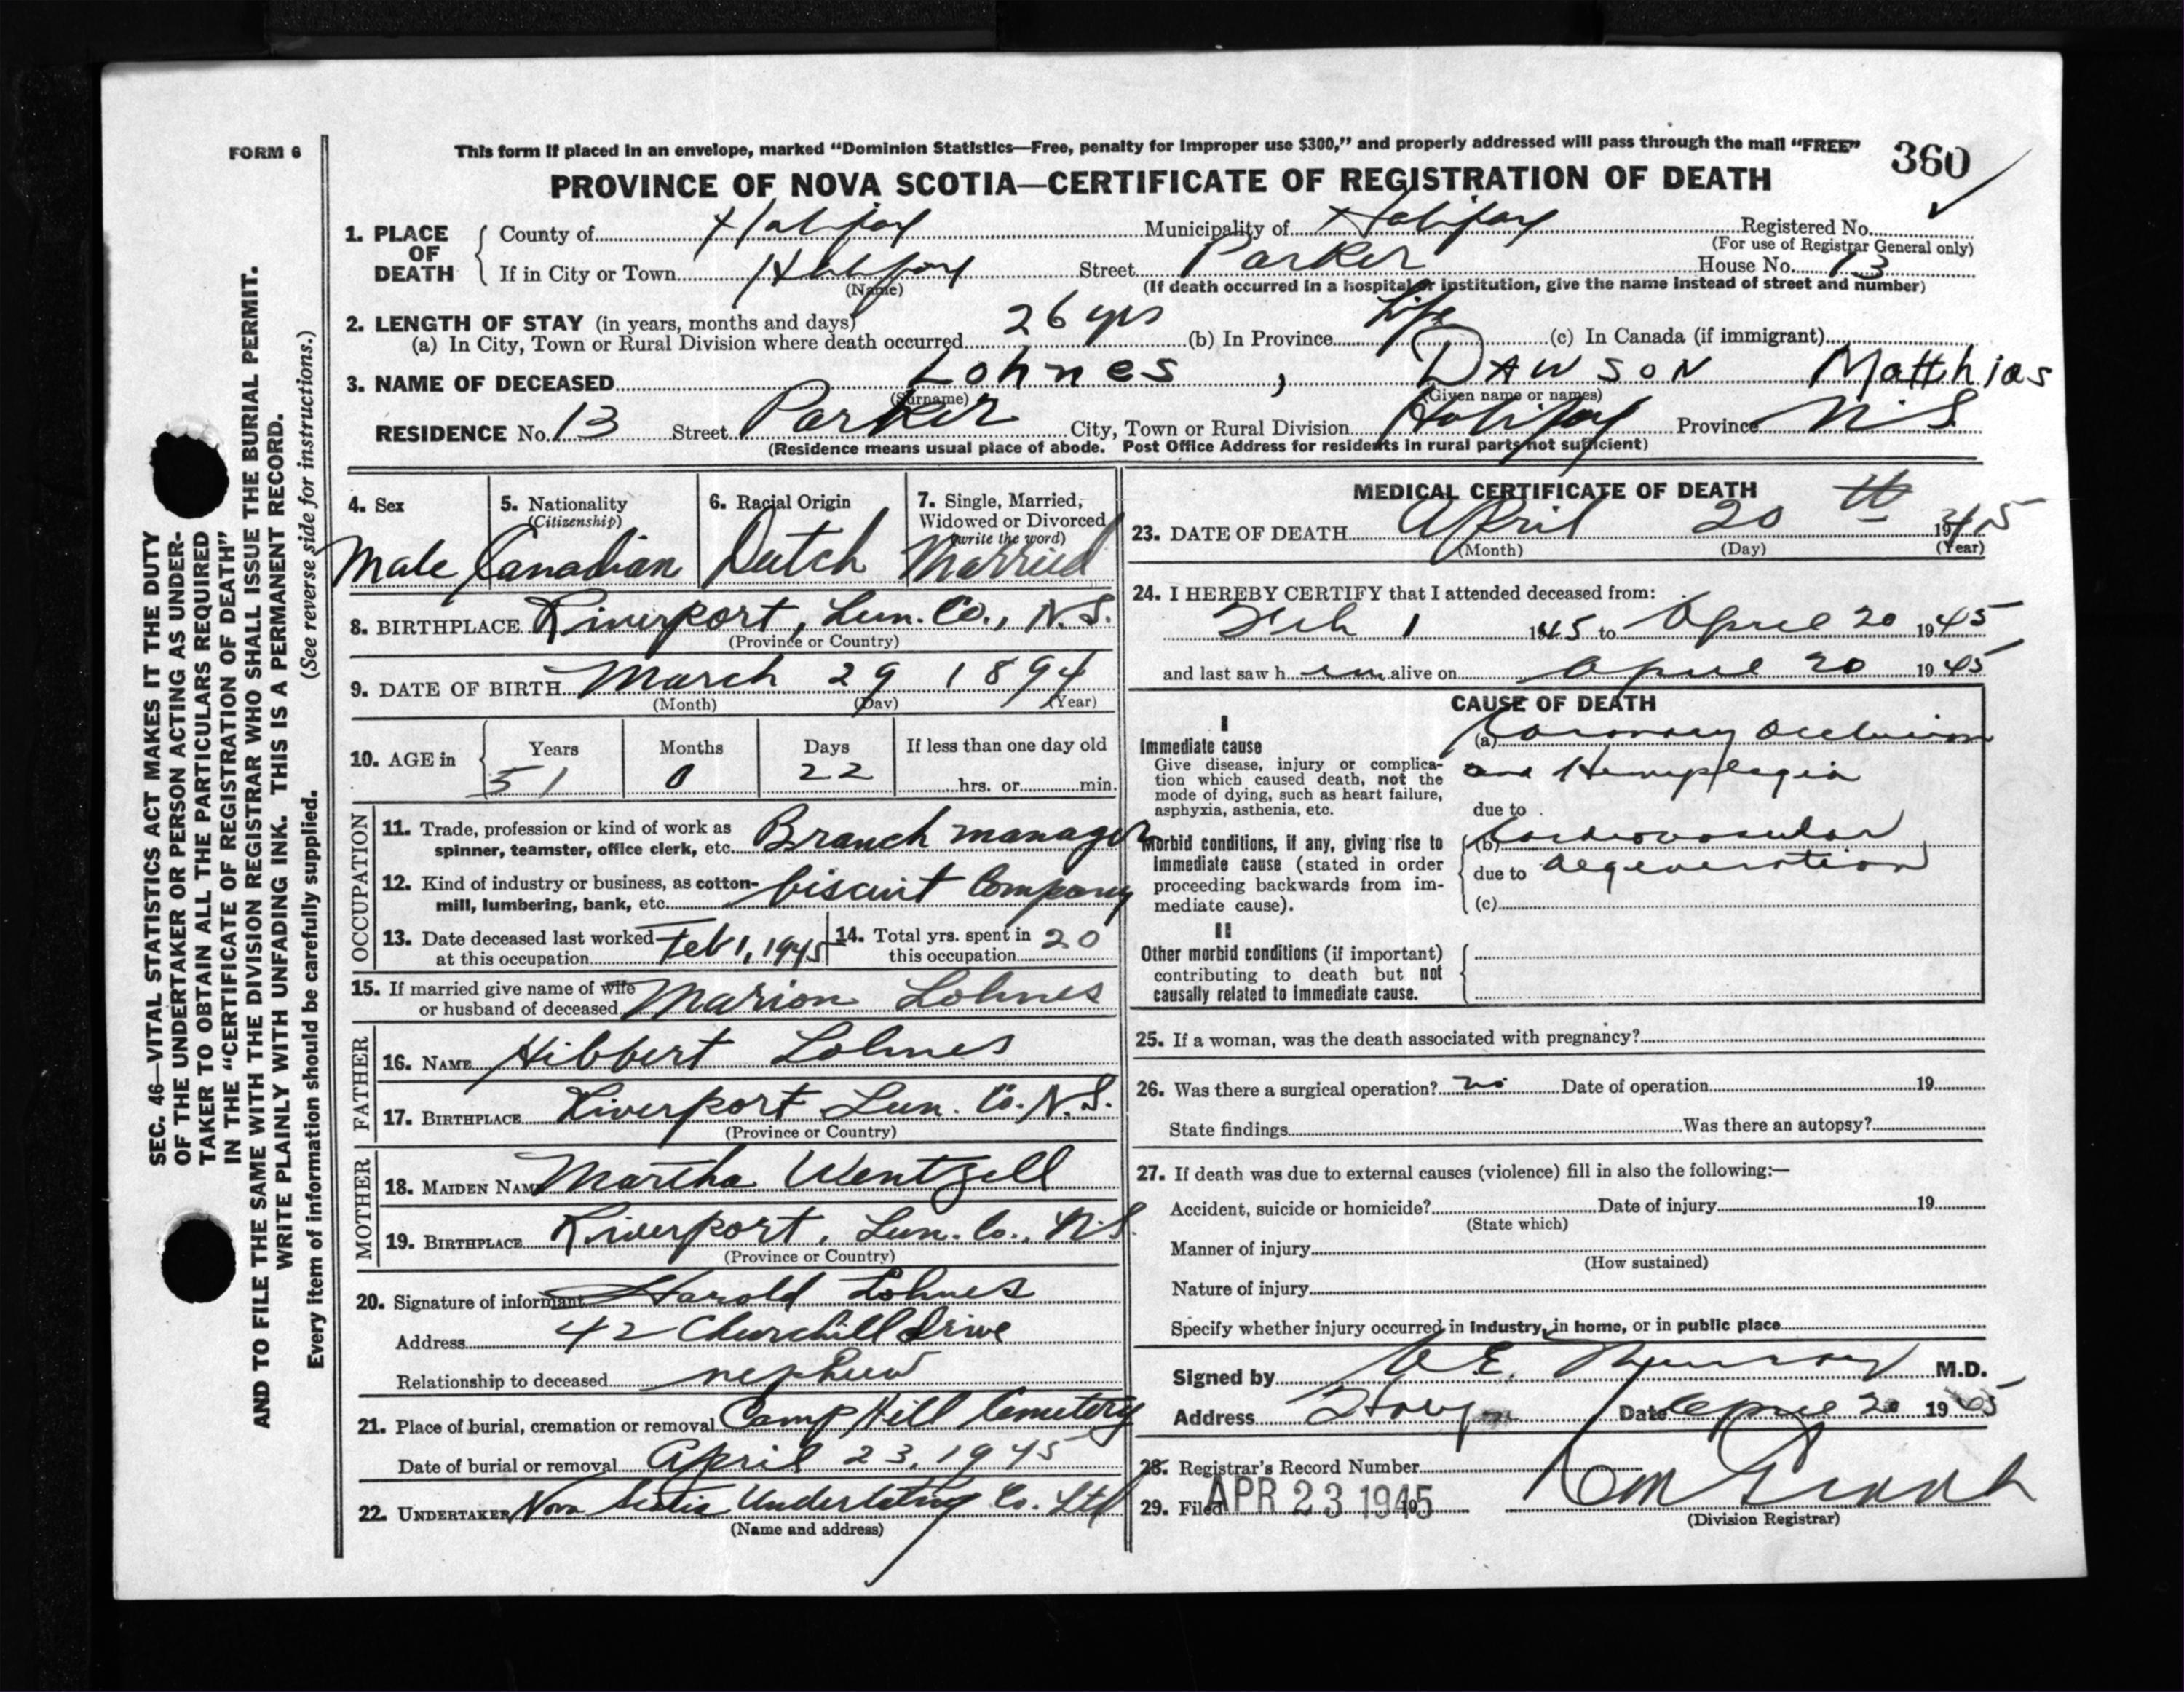 FORM 6
This form if placed in an envelope, marked “Dominion Statistics—Free, penalty for improper use $300,” and properly addressed will pass through the mail “FREE”
360
PROVINCE OF NOVA SCOTIA—CERTIFICATE OF REGISTRATION OF DEATH
1. PLACE OF DEATH
County of Halifax Municipality of Halifax Registered No.
(For use of Registrar General only)
If in City or Town Halifax Street Parker House No. 13
(Name) (If death occurred in a hospital or institution, give the name instead of street and number)
2. LENGTH OF STAY (in years, months and days)
(a) In City, Town or Rural Division where death occurred 26 yrs (b) In Province Life (c) In Canada (if immigrant)
3. NAME OF DECEASED Lohnes, DAWSON Matthias
(Surname) (Given name or names)
RESIDENCE No. 13 Street Parker City, Town or Rural Division Halifax Province N.S.
(Residence means usual place of abode. Post Office Address for residents in rural parts not sufficient)
4. Sex
Male
5. Nationality
(Citizenship)
Canadian
6. Racial Origin
Dutch
7. Single, Married,
Widowed or Divorced
(write the word)
Married
8. BIRTHPLACE Riverport, Lun. Co., N.S.
(Province or Country)
9. DATE OF BIRTH March 29 1894
(Month) (Day) (Year)
10. AGE in
Years Months Days If less than one day old
51 0 22 hrs. or min.
OCCUPATION
11. Trade, profession or kind of work as
spinner, teamster, office clerk, etc. Branch manager
12. Kind of industry or business, as cotton-
mill, lumbering, bank, etc. biscuit Company
13. Date deceased last worked
at this occupation Feb 1, 1945
14. Total yrs. spent in
this occupation 20
15. If married give name of wife
or husband of deceased Marion Lohnes
FATHER
16. NAME Hibbert Lohnes
17. BIRTHPLACE Riverport Lun. Co. N.S.
(Province or Country)
MOTHER
18. MAIDEN NAME Martha Wentzell
19. BIRTHPLACE Riverport, Lun. Co., N.S.
(Province or Country)
20. Signature of informant Harold Lohnes
Address 42 Churchill Drive
Relationship to deceased nephew
21. Place of burial, cremation or removal Camp Hill Cemetery
Date of burial or removal April 23, 1945
22. UNDERTAKER Nova Scotia Undertaking Co. Ltd
(Name and address)
MEDICAL CERTIFICATE OF DEATH
23. DATE OF DEATH April 20 th 1945
(Month) (Day) (Year)
24. I HEREBY CERTIFY that I attended deceased from:
Feb 1 1945 to April 20 1945
and last saw h im alive on April 20 1945
CAUSE OF DEATH
I
Immediate cause
Give disease, injury or complica-
tion which caused death, not the
mode of dying, such as heart failure,
asphyxia, asthenia, etc.
(a) Coronary Occlusion
and Hemiplegia
due to
Morbid conditions, if any, giving rise to
immediate cause (stated in order
proceeding backwards from im-
mediate cause).
(b) Cardiovascular
due to degeneration
(c)
II
Other morbid conditions (if important)
contributing to death but not
causally related to immediate cause.
25. If a woman, was the death associated with pregnancy?
26. Was there a surgical operation? no Date of operation 19
State findings Was there an autopsy?
27. If death was due to external causes (violence) fill in also the following:—
Accident, suicide or homicide? Date of injury 19
(State which)
Manner of injury
(How sustained)
Nature of injury
Specify whether injury occurred in industry, in home, or in public place
Signed by M.D.
Address Date April 20 1945
28. Registrar's Record Number
29. Filed APR 23 1945 19
(Division Registrar)
SEC. 46—VITAL STATISTICS ACT MAKES IT THE DUTY
OF THE UNDERTAKER OR PERSON ACTING AS UNDER-
TAKER TO OBTAIN ALL THE PARTICULARS REQUIRED
IN THE “CERTIFICATE OF REGISTRATION OF DEATH”
AND TO FILE THE SAME WITH THE DIVISION REGISTRAR WHO SHALL ISSUE THE BURIAL PERMIT.
WRITE PLAINLY WITH UNFADING INK. THIS IS A PERMANENT RECORD.
Every item of information should be carefully supplied. (See reverse side for instructions.)